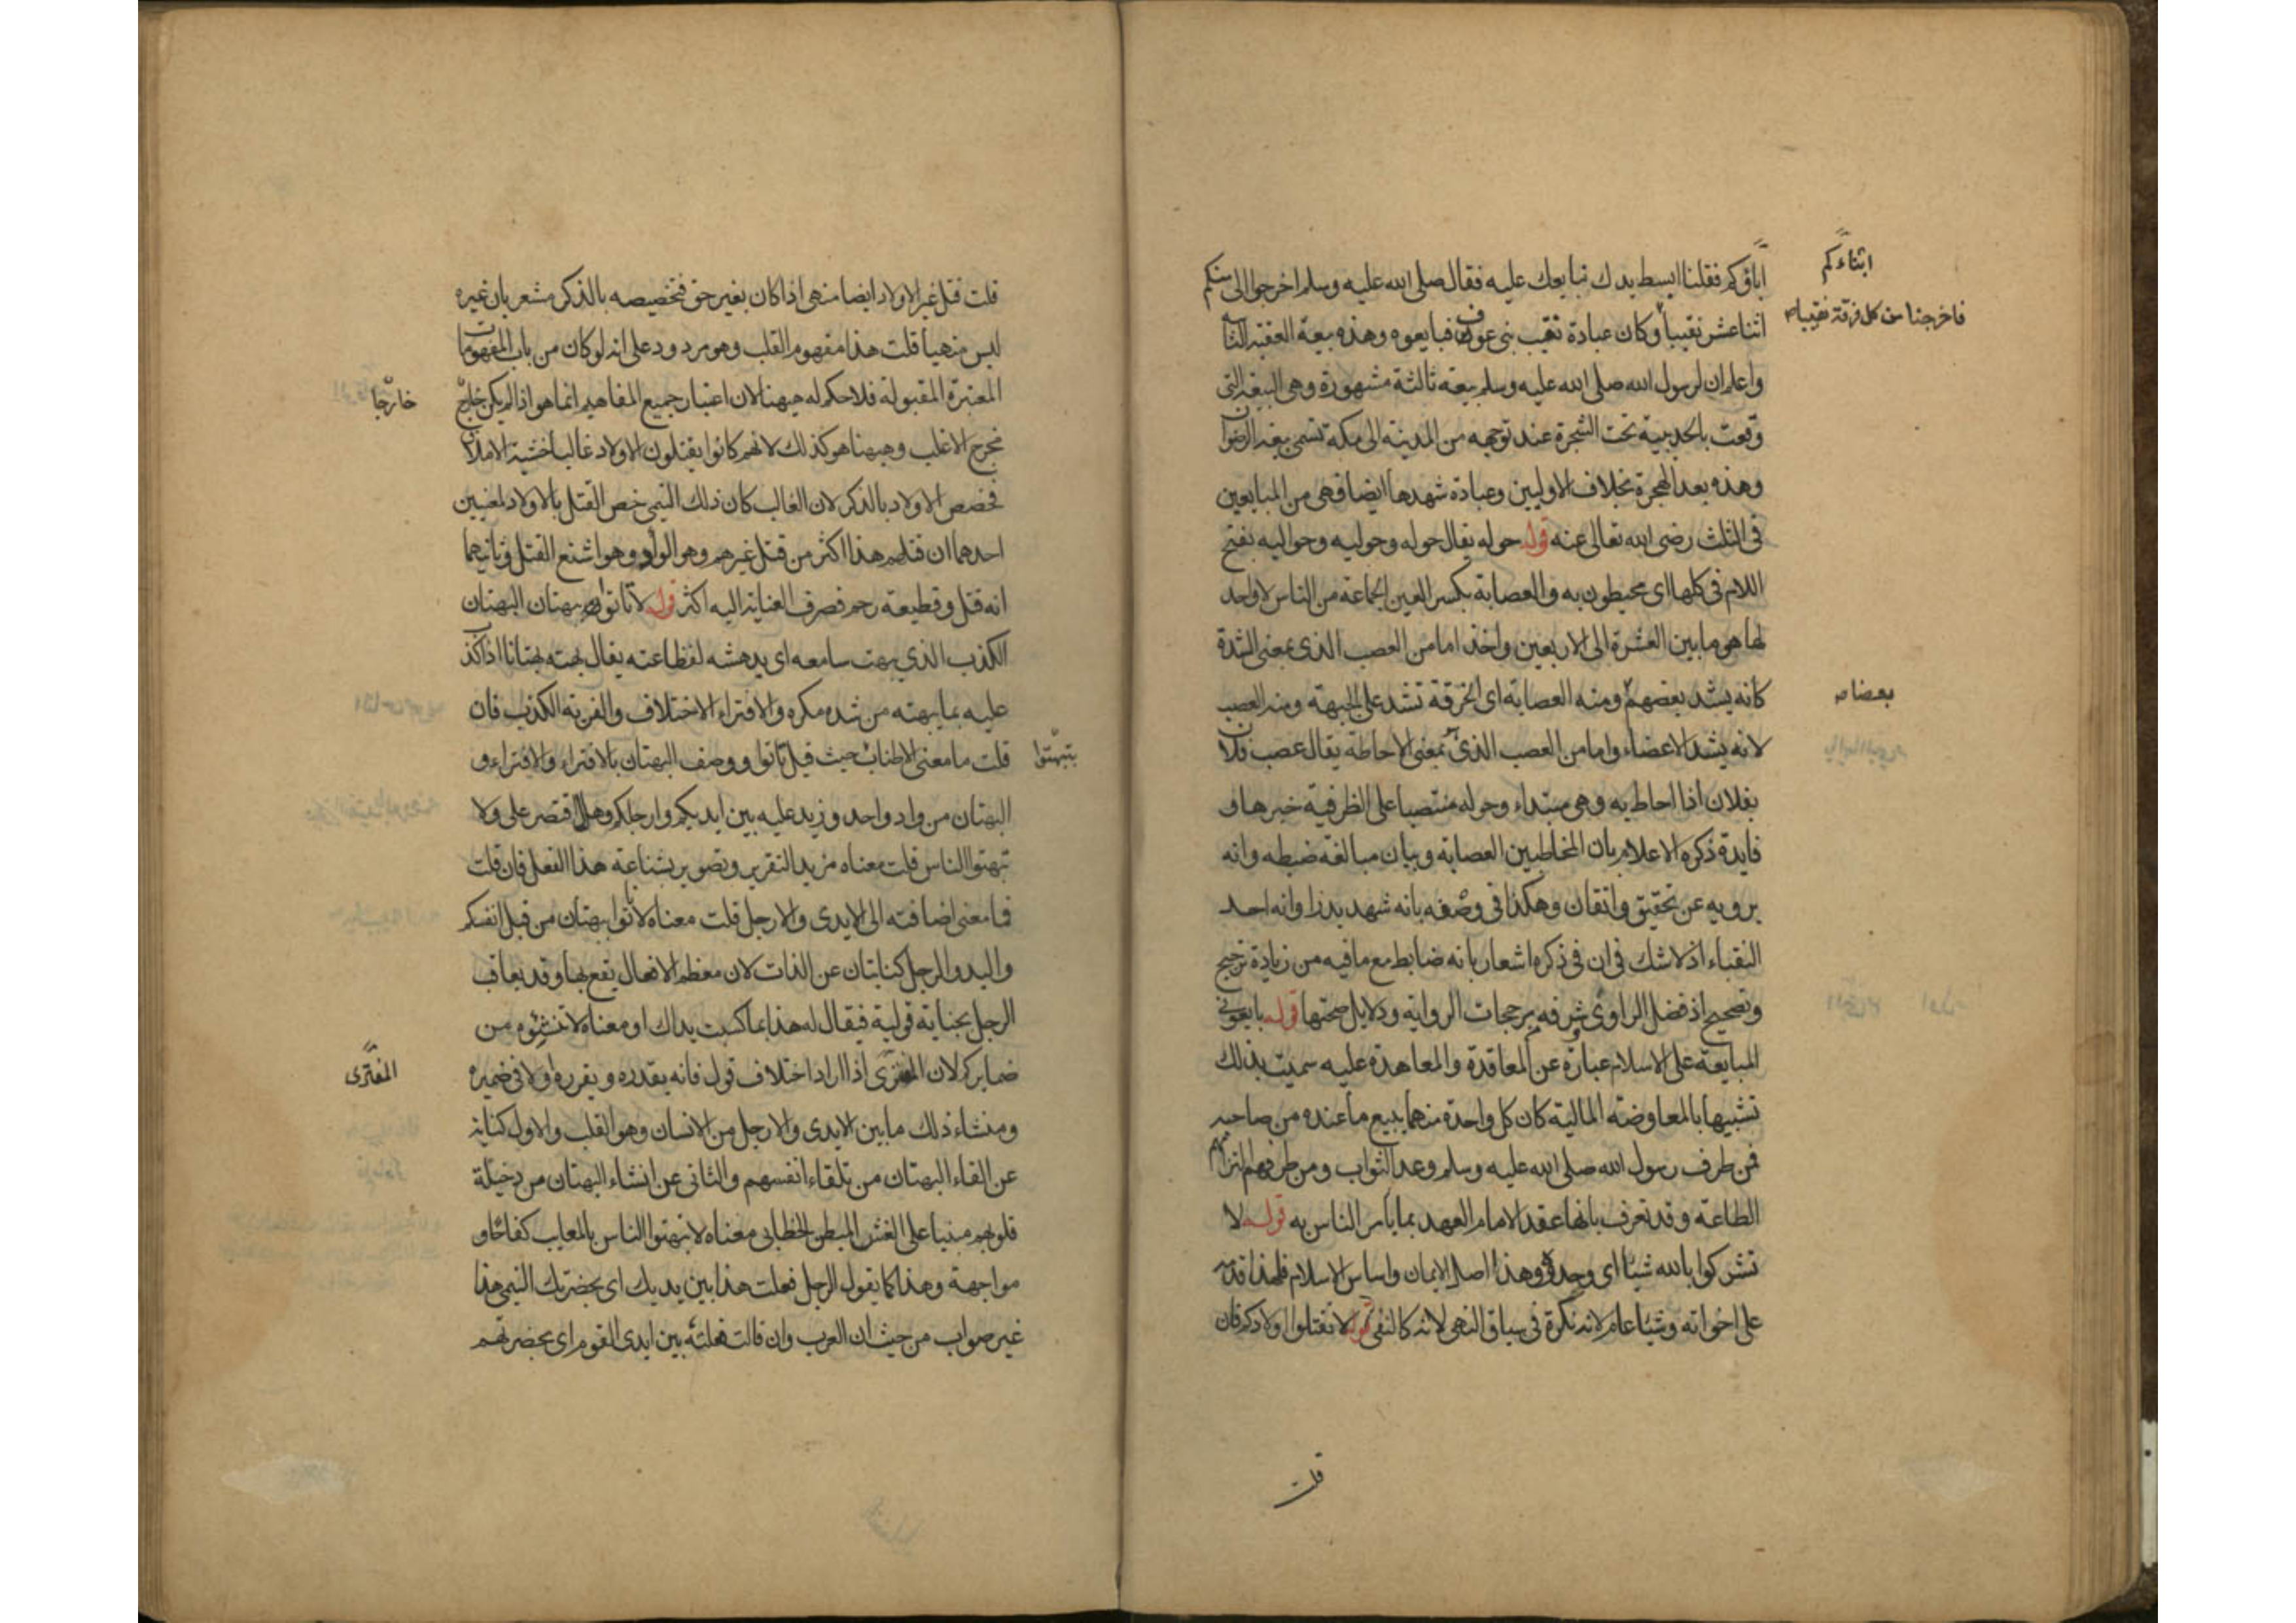 اباؤكم فقلنا ابسط يدك نبايعك عليه فقال صلى الله عليه وسلم اخرجوا الى منكم
ابناءكم
اثنا عشر نقيبا وكان عبادة نقيب بنى عوف فبايعوه وهذه بيعة العقبة الثانية
فاخرجنا من كل فرقة نقيبا صه
واعلم ان لرسول الله صلى الله عليه وسلم بيعة ثالثة مشهورة وهى البيعة التى
وقعت بالحديبية تحت الشجرة عند توجهه من المدينة الى مكة تسمى بيعة الرضوان
وهذه بعد الهجرة بخلاف الاوليين وعبادة شهدها ايضا فهى من المبايعين
فى الثلث رضى الله تعالى عنه قوله حوله يقال حوله وحوليه وحواليه بفتح
اللام فى كلها اى محيطون به والعصابة بكسر العين الجماعة من الناس لا واحد
لها هو ما بين العشرة الى الاربعين واخذ اما من العصب الذى بمعنى الشدة
كانه يشد بعضهم ومنه العصابة اى الخرقة تشد على الجبهة ومنه العصب
بعضا صه
لانه يشد الاعضاء واما من العصب الذى بمعنى الاحاطة يقال عصب فلان
بفلان اذا احاط به وهى مبتداء وحوله منتصبا على الظرفية خبرها و
فايدة ذكره الاعلام بان المخاطبين العصابة وبيان مبالغة ضبطه وانه
يرويه عن تحقيق واتقان وهكذا فى وصفه بانه شهد بدرا وانه احد
النقباء اذ لا شك فى ان فى ذكره اشعار بانه ضابط مع ما فيه من زيادة ترجيح
وتصحيح اذ فضل الراوى وشرفه من مرجحات الرواية ودلايل صحتها قوله بايعونى
المبايعة على الاسلام عبارة عن المعاقدة والمعاهدة عليه سميت بذلك
تشبيها بالمعاوضة المالية كان كل واحدة منهما يبيع ما عنده من صاحبه
فمن طرف رسول الله صلى الله عليه وسلم وعد الثواب ومن طرفهم التزام
الطاعة وقد تعرف بانها عقد الامام العهد بما يأمر الناس به قوله لا
تشركوا بالله شيئا اى وحدوه وهذا اصل الايمان واساس الاسلام فلهذا قدمه
على اخواته وشيئا عام لانه نكرة فى سياق النهى لانه كالنفى قوله لا تقتلوا اولادكم فان
قلت
قلت قتل غير الاولاد ايضا منهى اذا كان بغير حق فتخصيصه بالذكر مشعر بان غيره
ليس منهيا قلت هذا مفهوم القلب وهو مردود على انه لو كان من باب المفهومات
المعتبرة المقبولة فلا حكم له ههنا لان اعتبار جميع المفاهيم انما هو اذا لم يكن خارج
خارجا
مخرج الاغلب وههنا هو كذلك لانهم كانوا يقتلون الاولاد غالبا خشية الاملاق
فخصص الاولاد بالذكر لان الغالب كان ذلك التيمى خص القتل بالاولاد لمعنيين
احدهما ان قتلهم هذا اكثر من قتل غيرهم وهو الوأد وهو اشنع القتل وثانيهما
انه قتل وقطيعة رحم فصرف العناية اليه اكثر قوله لا تأتوا ببهتان البهتان
الكذب الذى يبهت سامعه اى يدهشه لفظاعته يقال بهته بهتانا اذا كذب
عليه بما يبهته من شدة مكره والافتراء الاختلاف والفرية الكذب فان
قلت ما معنى الاطناب حيث قيل تأتوا ووصف البهتان بالافتراء والافتراء و
بتبهتوا
البهتان من واد واحد وزيد عليه بين ايديكم وارجلكم وهلا اقتصر على ولا
تبهتوا الناس قلت معناه مزيد التقرير وتصوير بشناعة هذا الفعل فان قلت
فما معنى اضافته الى الايدى والارجل قلت معناه لا تأتوا ببهتان من قبل انفسكم
واليد والرجل كنايتان عن الذات لان معظم الافعال يقع بها وقد يعاقب
الرجل بجناية قولية فيقال له هذا بما كسبت يداك او معناه لا تنشئوه من
ضمايركم لان المفترى اذا اراد اختلاف قول فانه يقدره ويقرره اولا فى ضميره
المفترى
ومنشاء ذلك ما بين الايدى والارجل من الانسان وهو القلب والاول كناية
عن القاء البهتان من تلقاء انفسهم والثانى عن انشاء البهتان من دخيلة
قلوبهم مبنيا على الغش المبطن الخطابى معناه لا تبهتوا الناس بالمعايب كفاحا و
مواجهة وهذا كما يقول الرجل فعلت هذا بين يديك اى بحضرتك التيمى هذا
غير صواب من حيث ان العرب وان قالت فعلته بين ايدى القوم اى بحضرتهم